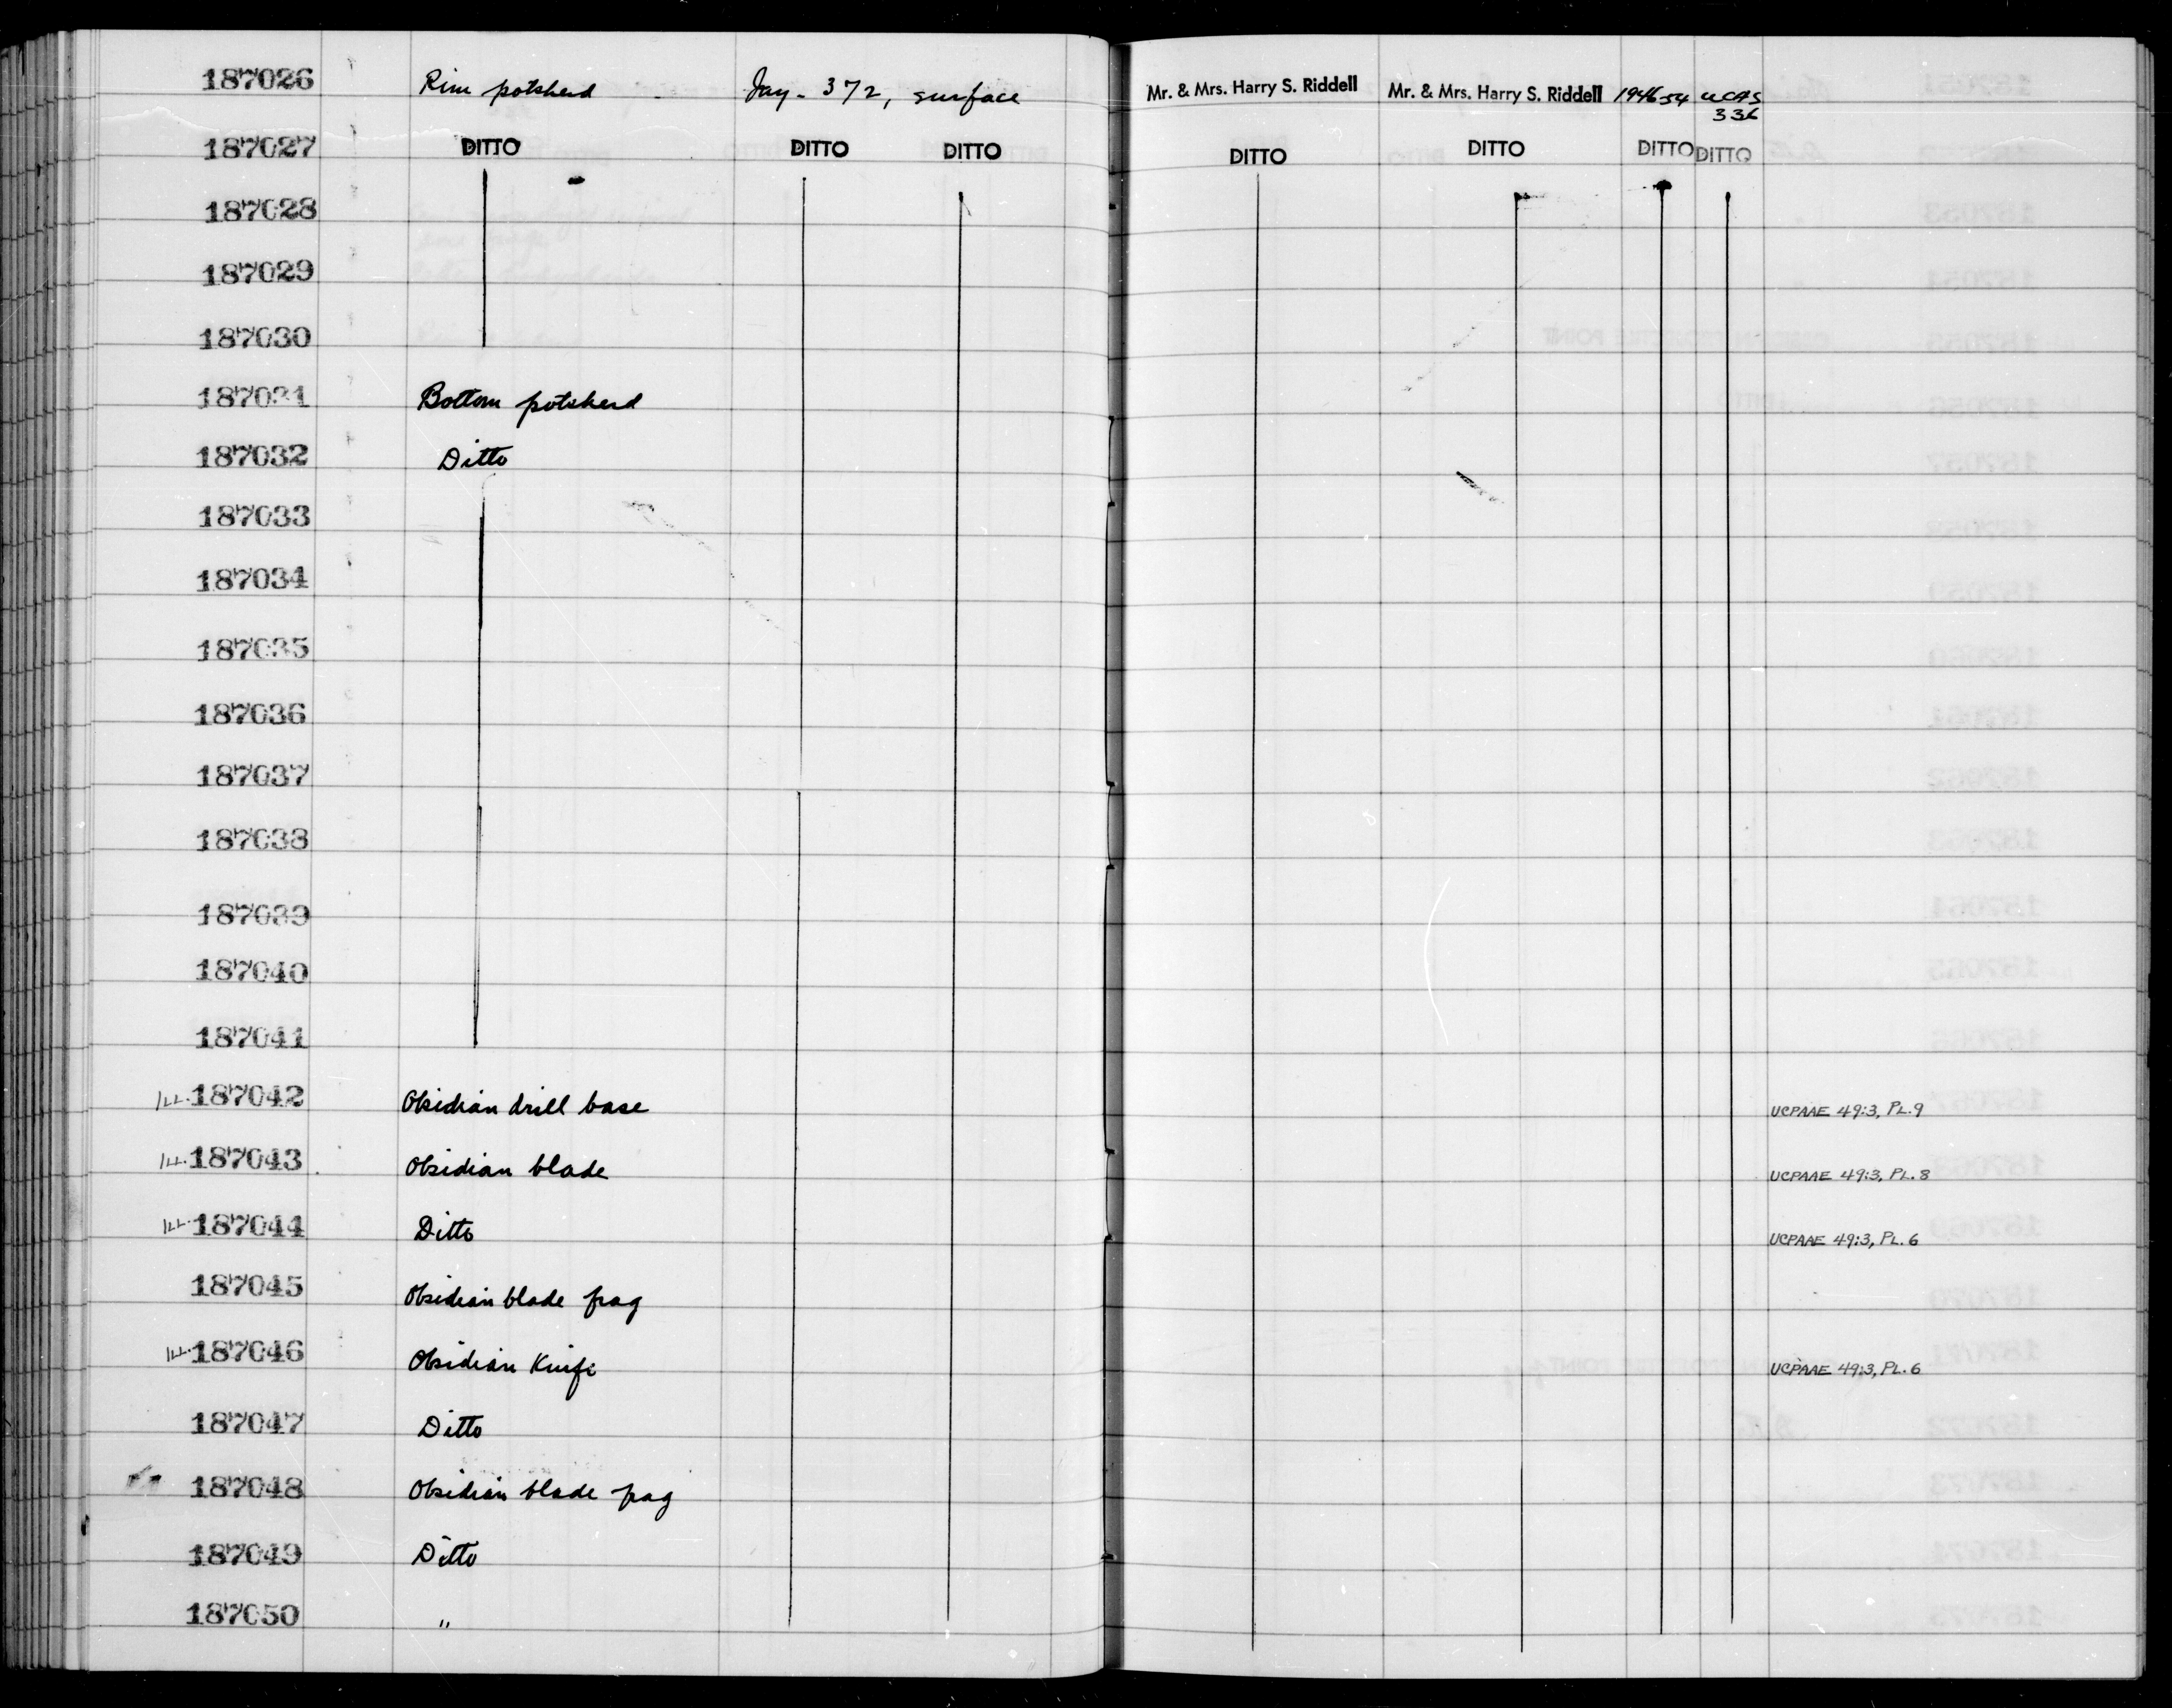 187026 Rim potsherd Iny-372, surface Mr. & Mrs. Harry S. Riddell Mr. & Mrs. Harry S. Riddell 1946-54 UCAS
336
187027 DITTO DITTO DITTO DITTO DITTO DITTO DITTO
187028
187029
187030
187031 Bottom potsherd
187032 Ditto
187033
187034
187035
187036
187037
187038
187039
187040
187041
ILL. 187042 Obsidian drill base UCPAAE 49:3, PL.9
ILL. 187043 Obsidian blade UCPAAE 49:3, PL.8
ILL. 187044 Ditto UCPAAE 49:3, PL.6
187045 Obsidian blade frag
ILL. 187046 Obsidian Knife UCPAAE 49:3, PL.6
187047 Ditto
187048 Obsidian blade frag
187049 Ditto
187050 "